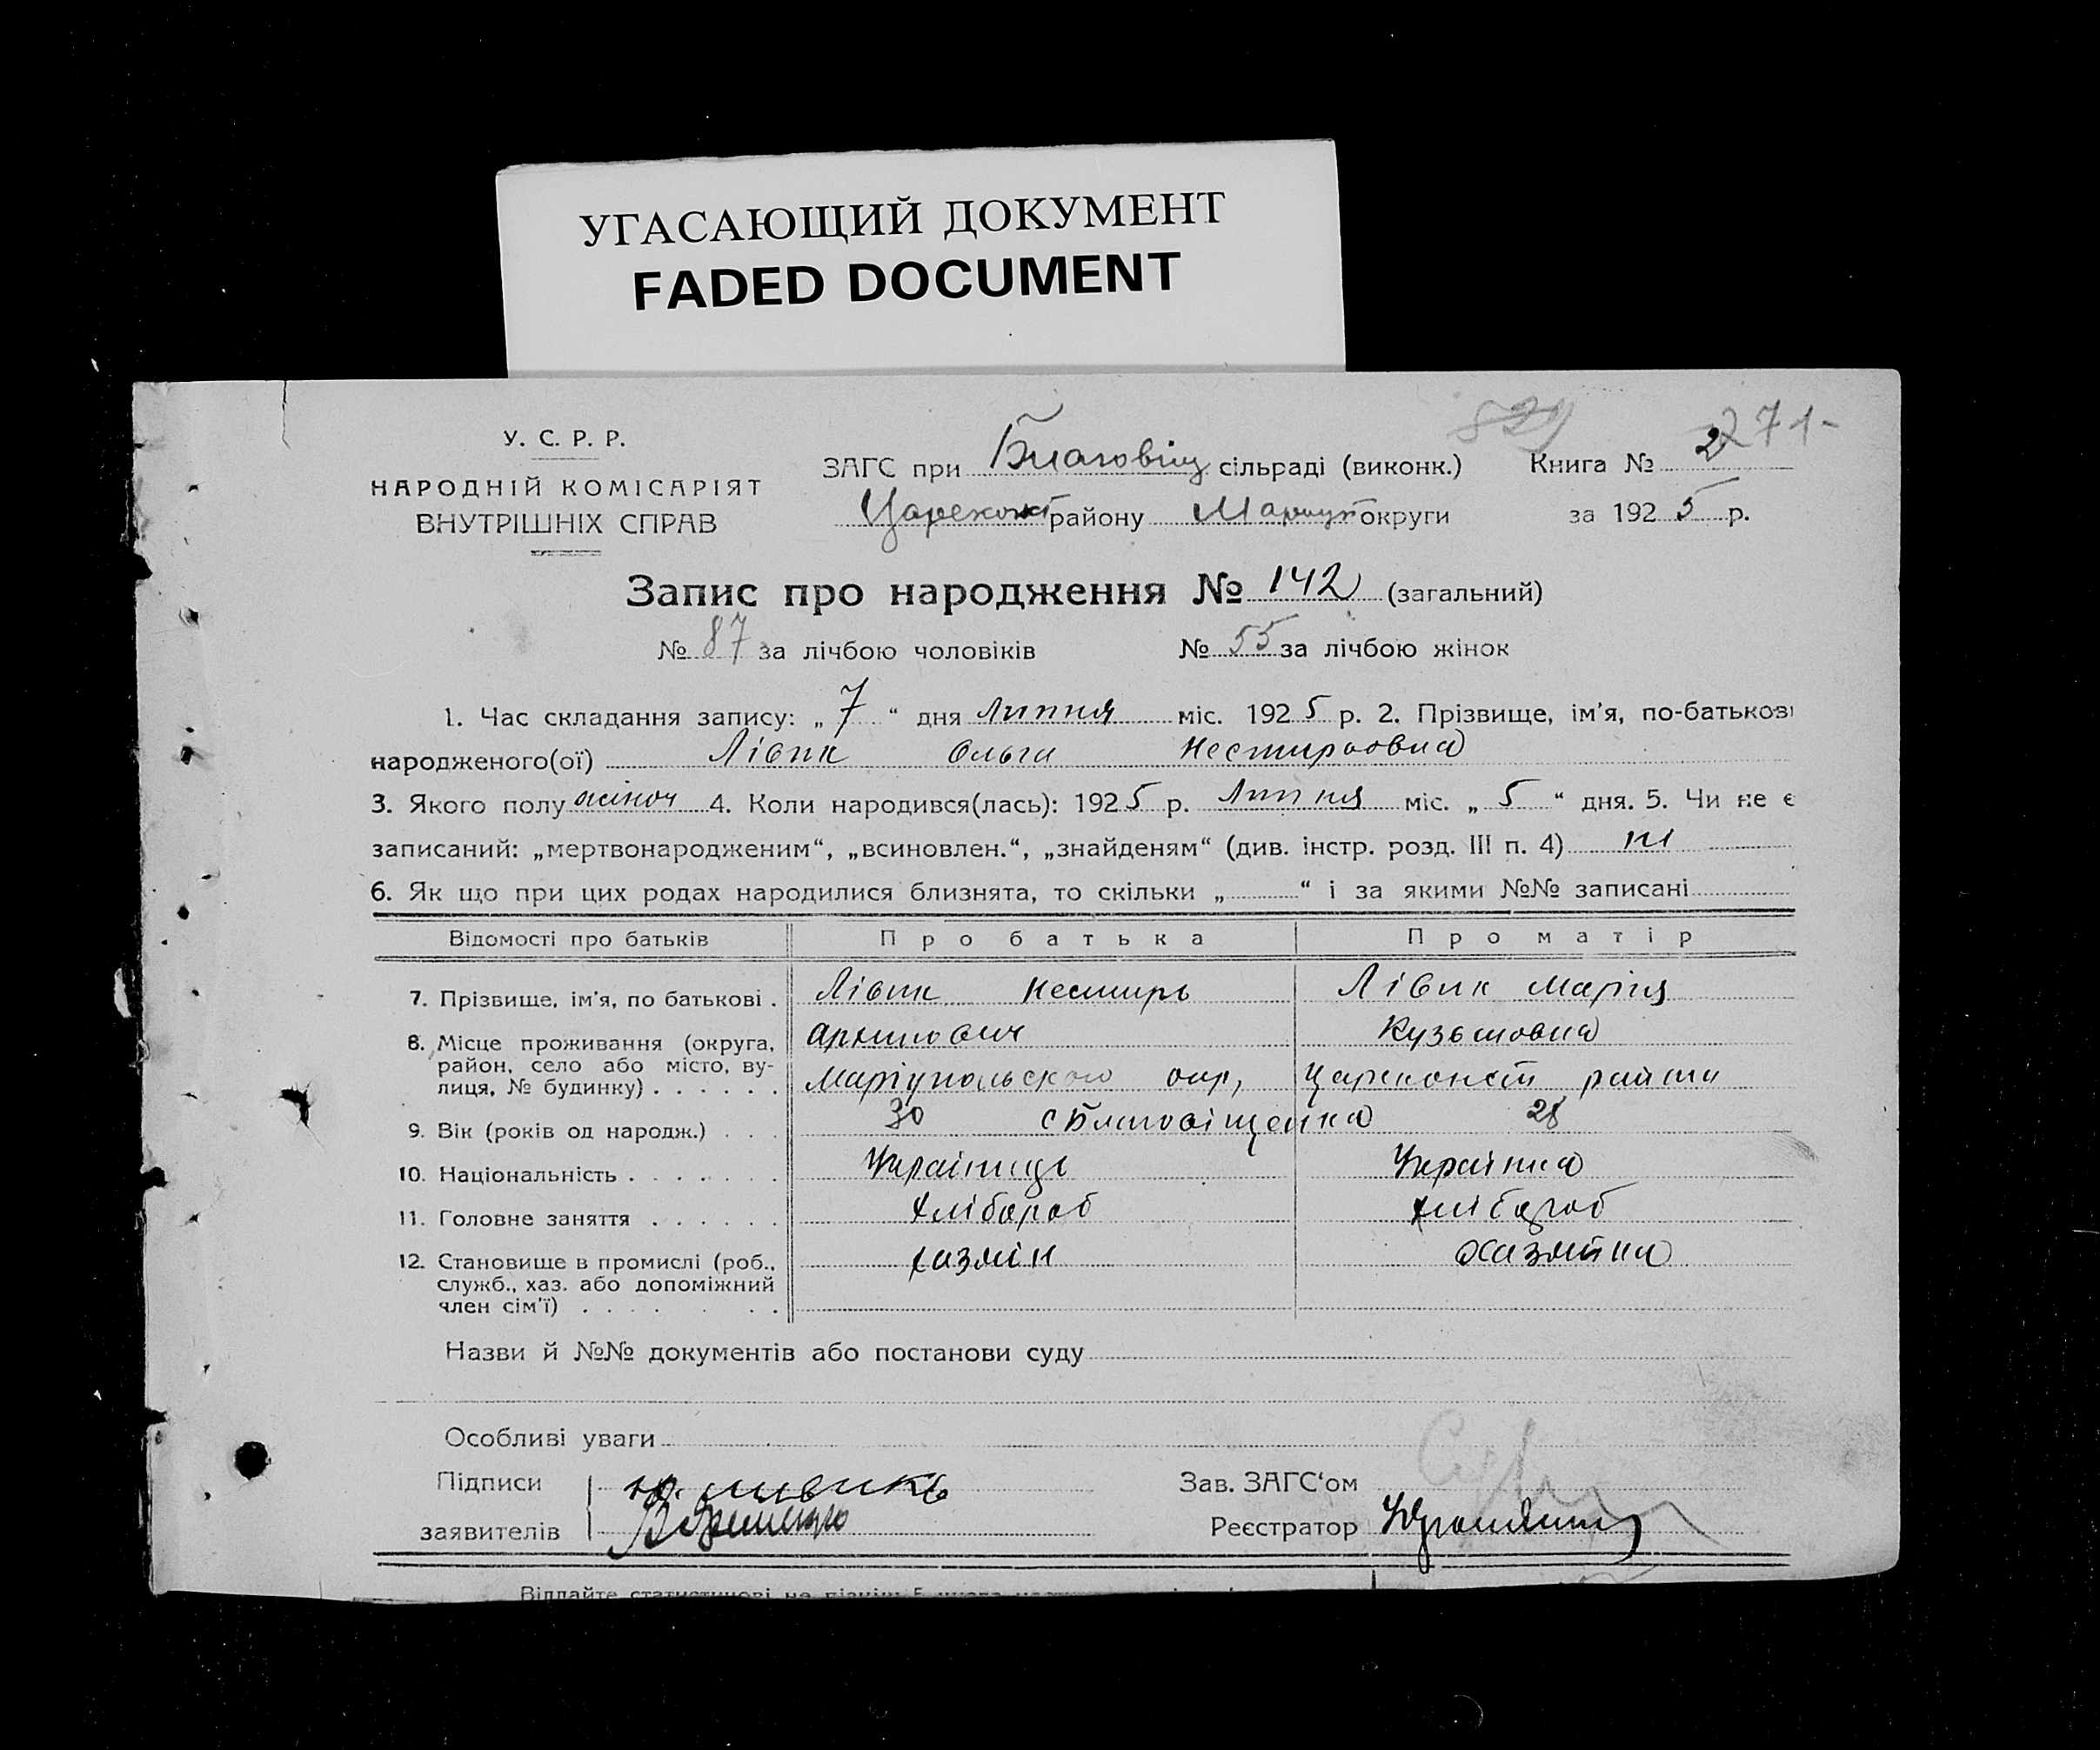 УГАСАЮЩИЙ ДОКУМЕНТ
FADED DOCUMENT
У. С. Р. Р.
НАРОДНІЙ КОМІСАРІЯТ
ВНУТРІШНІХ СПРАВ
ЗАГС при Благовіщ сільраді (виконк.) Книга № 2 271-
Царекон району Маріуп округи за 1925 р.
Запис про народження № 142 (загальний)
№ 87 за лічбою чоловіків № 55 за лічбою жінок
1. Час складання запису: „7“ дня Липня міс. 1925 р. 2. Прізвище, ім'я, по-батькові
народженого(ої) Лівик Ольга Нестировна
3. Якого полу жіноч 4. Коли народився(лась): 1925 р. Липня міс. „5“ дня. 5. Чи не є
записаний: „мертвонародженим“, „всиновлен.“, „знайденям“ (див. інстр. розд. III п. 4) ні
6. Як що при цих родах народилися близнята, то скільки „ “ і за якими №№ записані
Відомості про батьків Про батька Про матір
7. Прізвище, ім'я, по батькові . Лівик Нестирь Лівик Марія
Архипович Кузьмовна
8. Місце проживання (округа,
район, село або місто, ву-
лиця, № будинку) . . . . . . Маріупольского окр, Цареконст района
с Благовіщенка
9. Вік (років од народж.) . . . 30 28
10. Національність . . . . . . . Українець Українка
11. Головне заняття . . . . . . Хлібороб хлібороб
12. Становище в промислі (роб.,
служб., хаз. або допоміжний
член сім'ї) . . . . . . . хазяін хазяйка
Назви й №№ документів або постанови суду
Особливі уваги
Підписи
заявителів
Зав. ЗАГС‘ом
Реєстратор